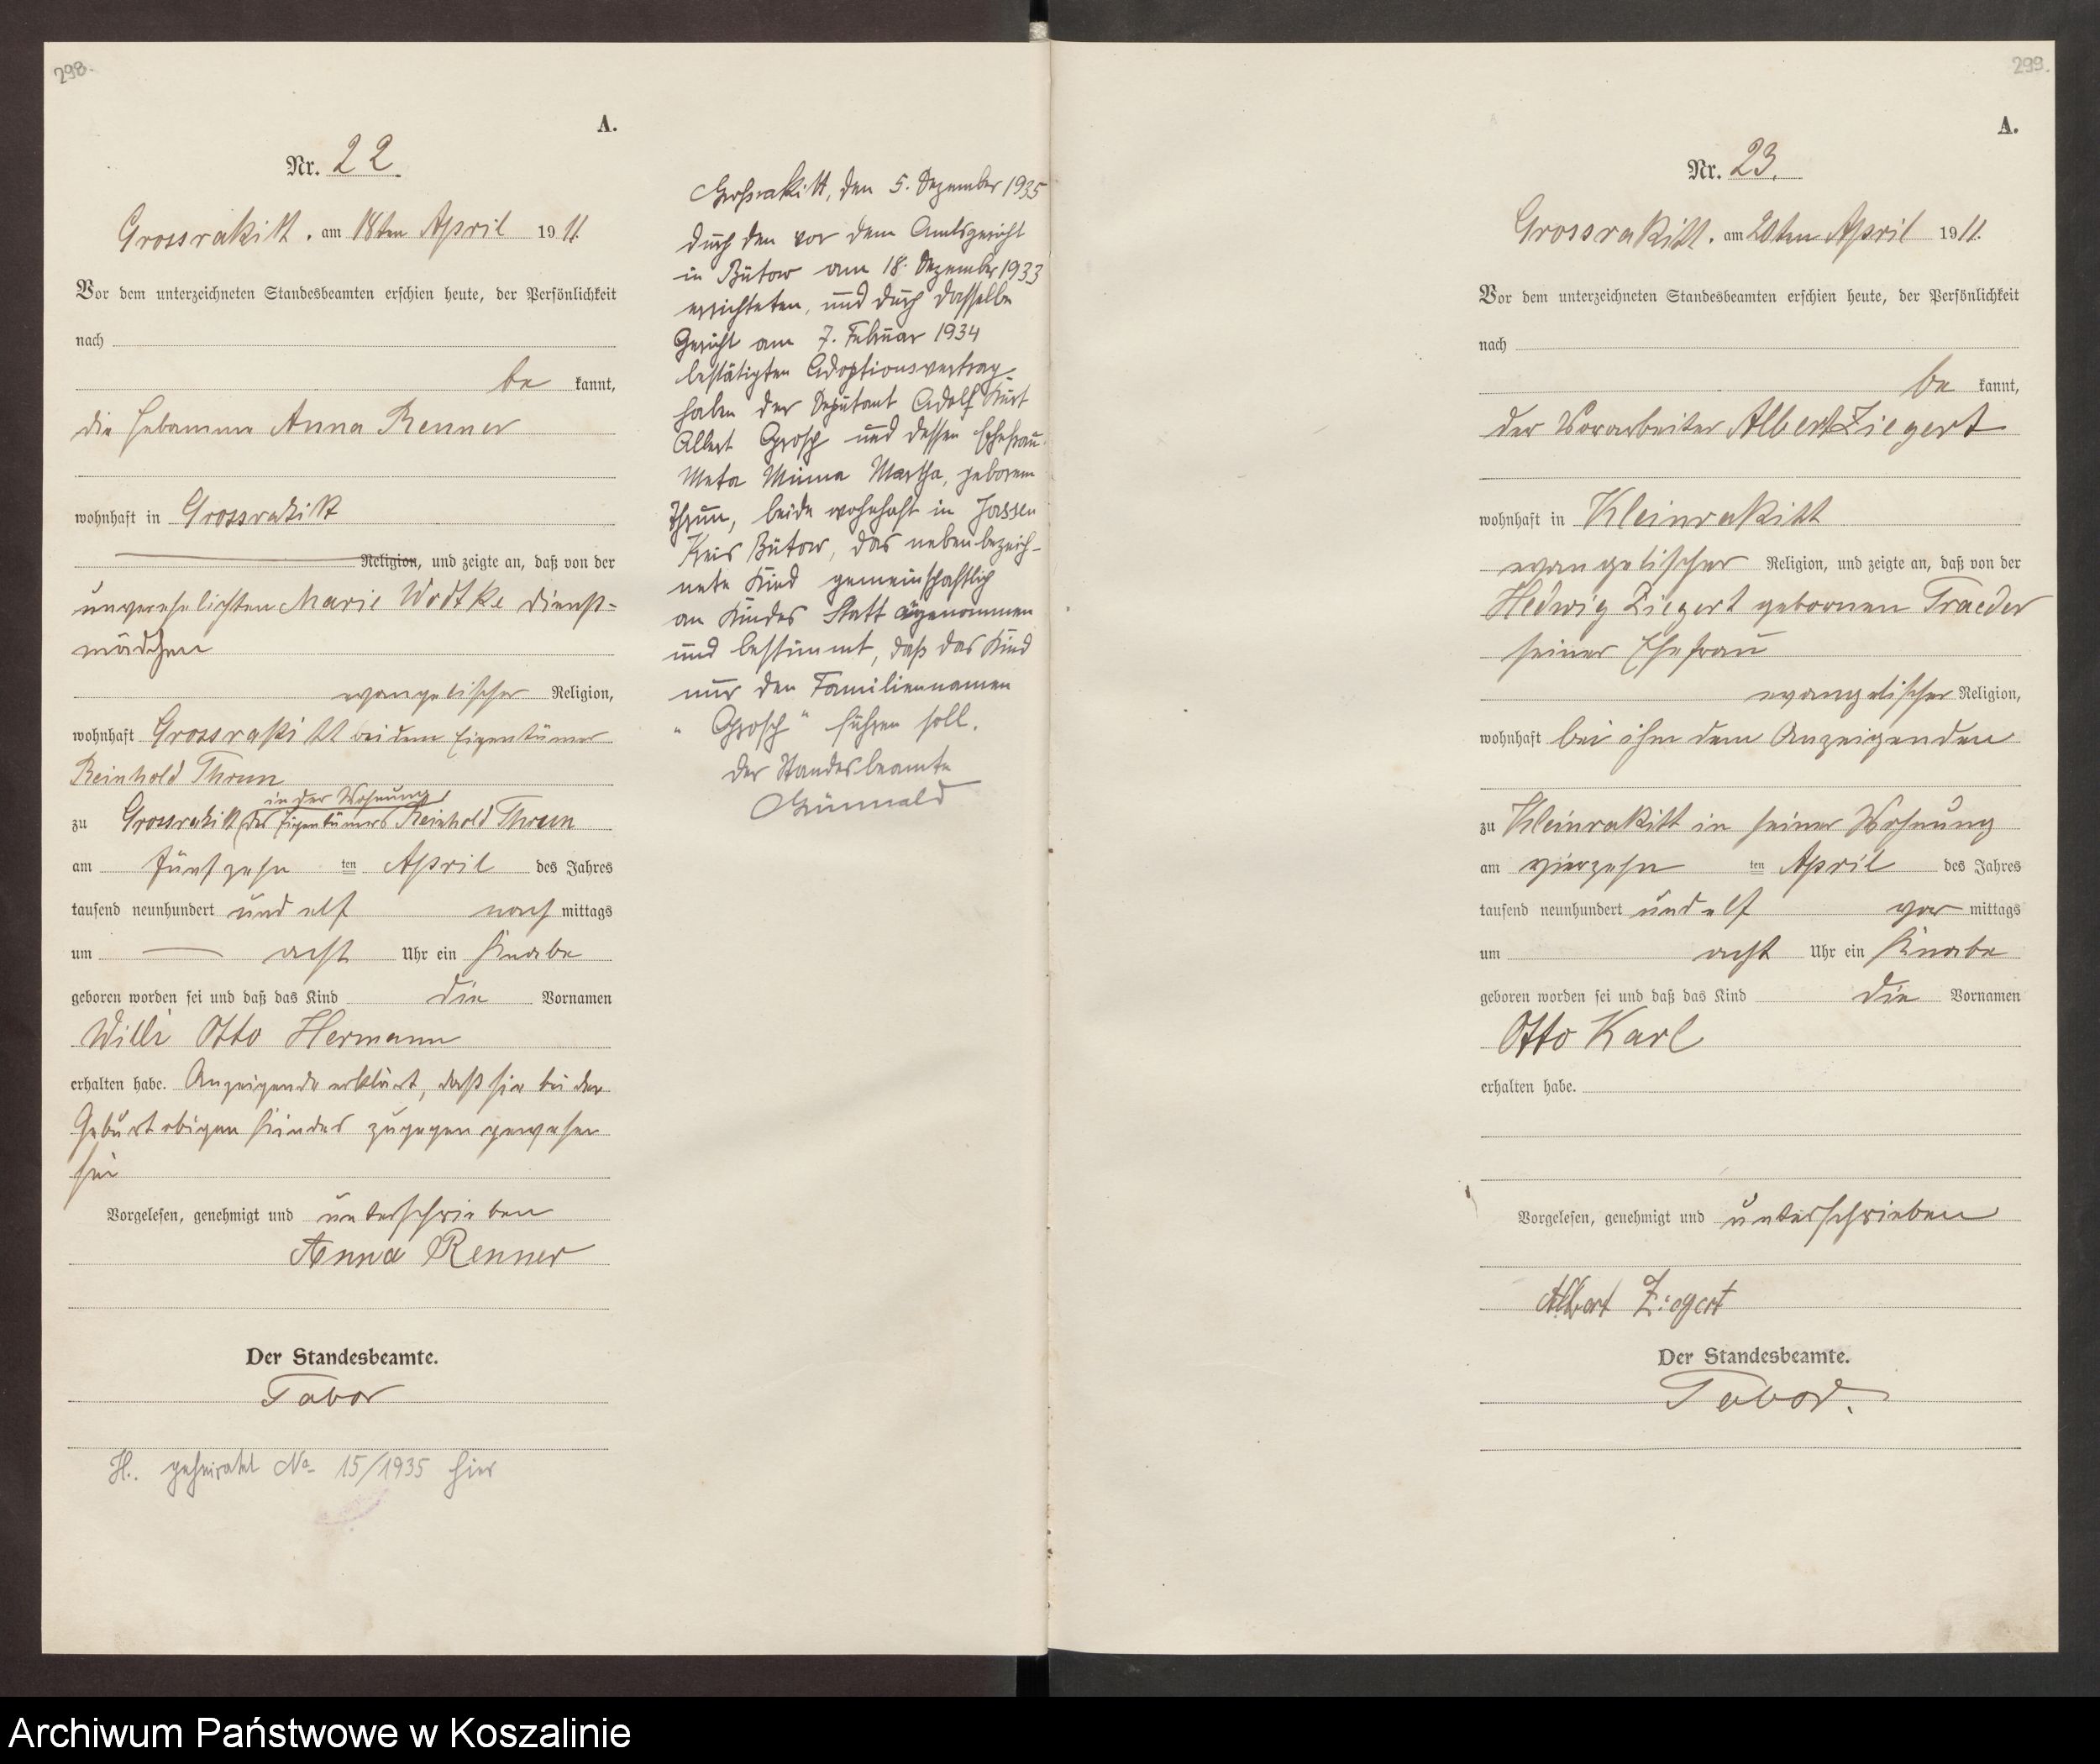 298.
A.
Nr. 22.
Grossrakitt. am 18ten April 1911.
Vor dem unterzeichneten Standesbeamten erschien heute, der Persönlichkeit
nach
be kannt,
die Hebamme Anna Renner
wohnhaft in Grossrakitt
Religion, und zeigte an, daß von der
unverehelichten Marie Wodtke Dienst-
mädchen
evangelischer Religion,
wohnhaft Grossrakitt bei dem Eigentümer
Reinhold Thrun
in der Wohnung
zu Grossrakitt des Eigentümers Reinhold Thrun
am fünfzehn ten April des Jahres
tausend neunhundert und elf nach mittags
um acht Uhr ein Knabe
geboren worden sei und daß das Kind die Vornamen
Willi Otto Hermann
erhalten habe. Anzeigende erklärt, daß sie bei der
Geburt obigen Kindes zugegen gewesen
sei
Vorgelesen, genehmigt und unterschrieben
Anna Renner
Der Standesbeamte.
Tabor
H.. geheiratet No 15/1935 hier
Großrakitt, den 5. Dezember 1935
Durch den vor dem Amtsgericht
in Bütow am 18. Dezember 1933
errichteten, und durch dasselbe
Gericht am 7. Februar 1934
bestätigten Adoptionsvertrag
haben der Deputant Adolf Kurt
Albert Grosch und dessen Ehefrau
Meta Minna Martha, geborene
Thrun, beide wohnhaft in Jassen
Kreis Bütow, das nebenbezeich-
nete Kind gemeinschaftlich
an Kindes Statt angenommen
und bestimmt, daß das Kind
nur den Familiennamen
"Grosch" führen soll.
Der Standesbeamte
Grünwald
299.
A.
Nr. 23.
Grossrakitt. am 20ten April 1911.
Vor dem unterzeichneten Standesbeamten erschien heute, der Persönlichkeit
nach
be kannt,
der Vorarbeiter Albert Ziegert
wohnhaft in Kleinrakitt
evangelischer Religion, und zeigte an, daß von der
Hedwig Ziegert gebornen Traeder
seiner Ehefrau
evangelischer Religion,
wohnhaft bei ihm dem Anzeigenden
zu Kleinrakitt in seiner Wohnung
am vierzehn ten April des Jahres
tausend neunhundert und elf vor mittags
um acht Uhr ein Knabe
geboren worden sei und daß das Kind die Vornamen
Otto Karl
erhalten habe.
Vorgelesen, genehmigt und unterschrieben
Albert Ziegert
Der Standesbeamte.
Tabor.
Archiwum Państwowe w Koszalinie